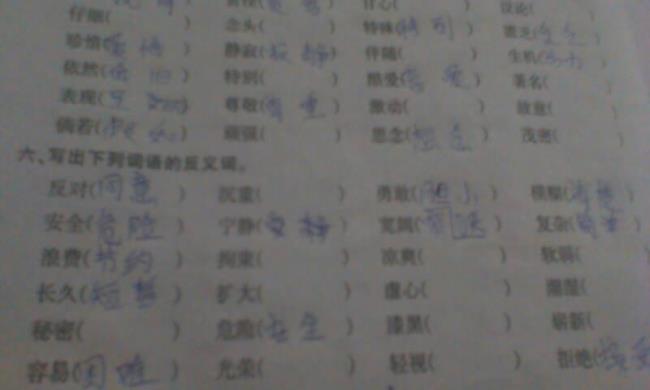 仔细( ) 念头( ) 特殊(特别)
珍惜(爱惜) 静寂(寂静) 伴随( ) 生机(
依然(依旧) 特别( ) 酷爱(喜爱) 著名( )
表现( 尊敬(尊重) 激动( ) 故意( )
倘若( 顽强( ) 思念(想念) 茂密( )
六、写出下列词语的反义词。
反对(同意) 沉重( ) 勇敢(胆小) 模糊(清楚)
安全(危险) 宁静( 宽阔( 复杂(简单)
浪费(节约) 拘束( ) 凉爽( ) 软弱( )
长久(短暂) 扩大( ) 虚心( ) 潮湿( )
秘密( ) 危险(安全) 漆黑( ) 崭新( )
容易(困难) 光荣( ) 轻视( ) 拒绝(接受